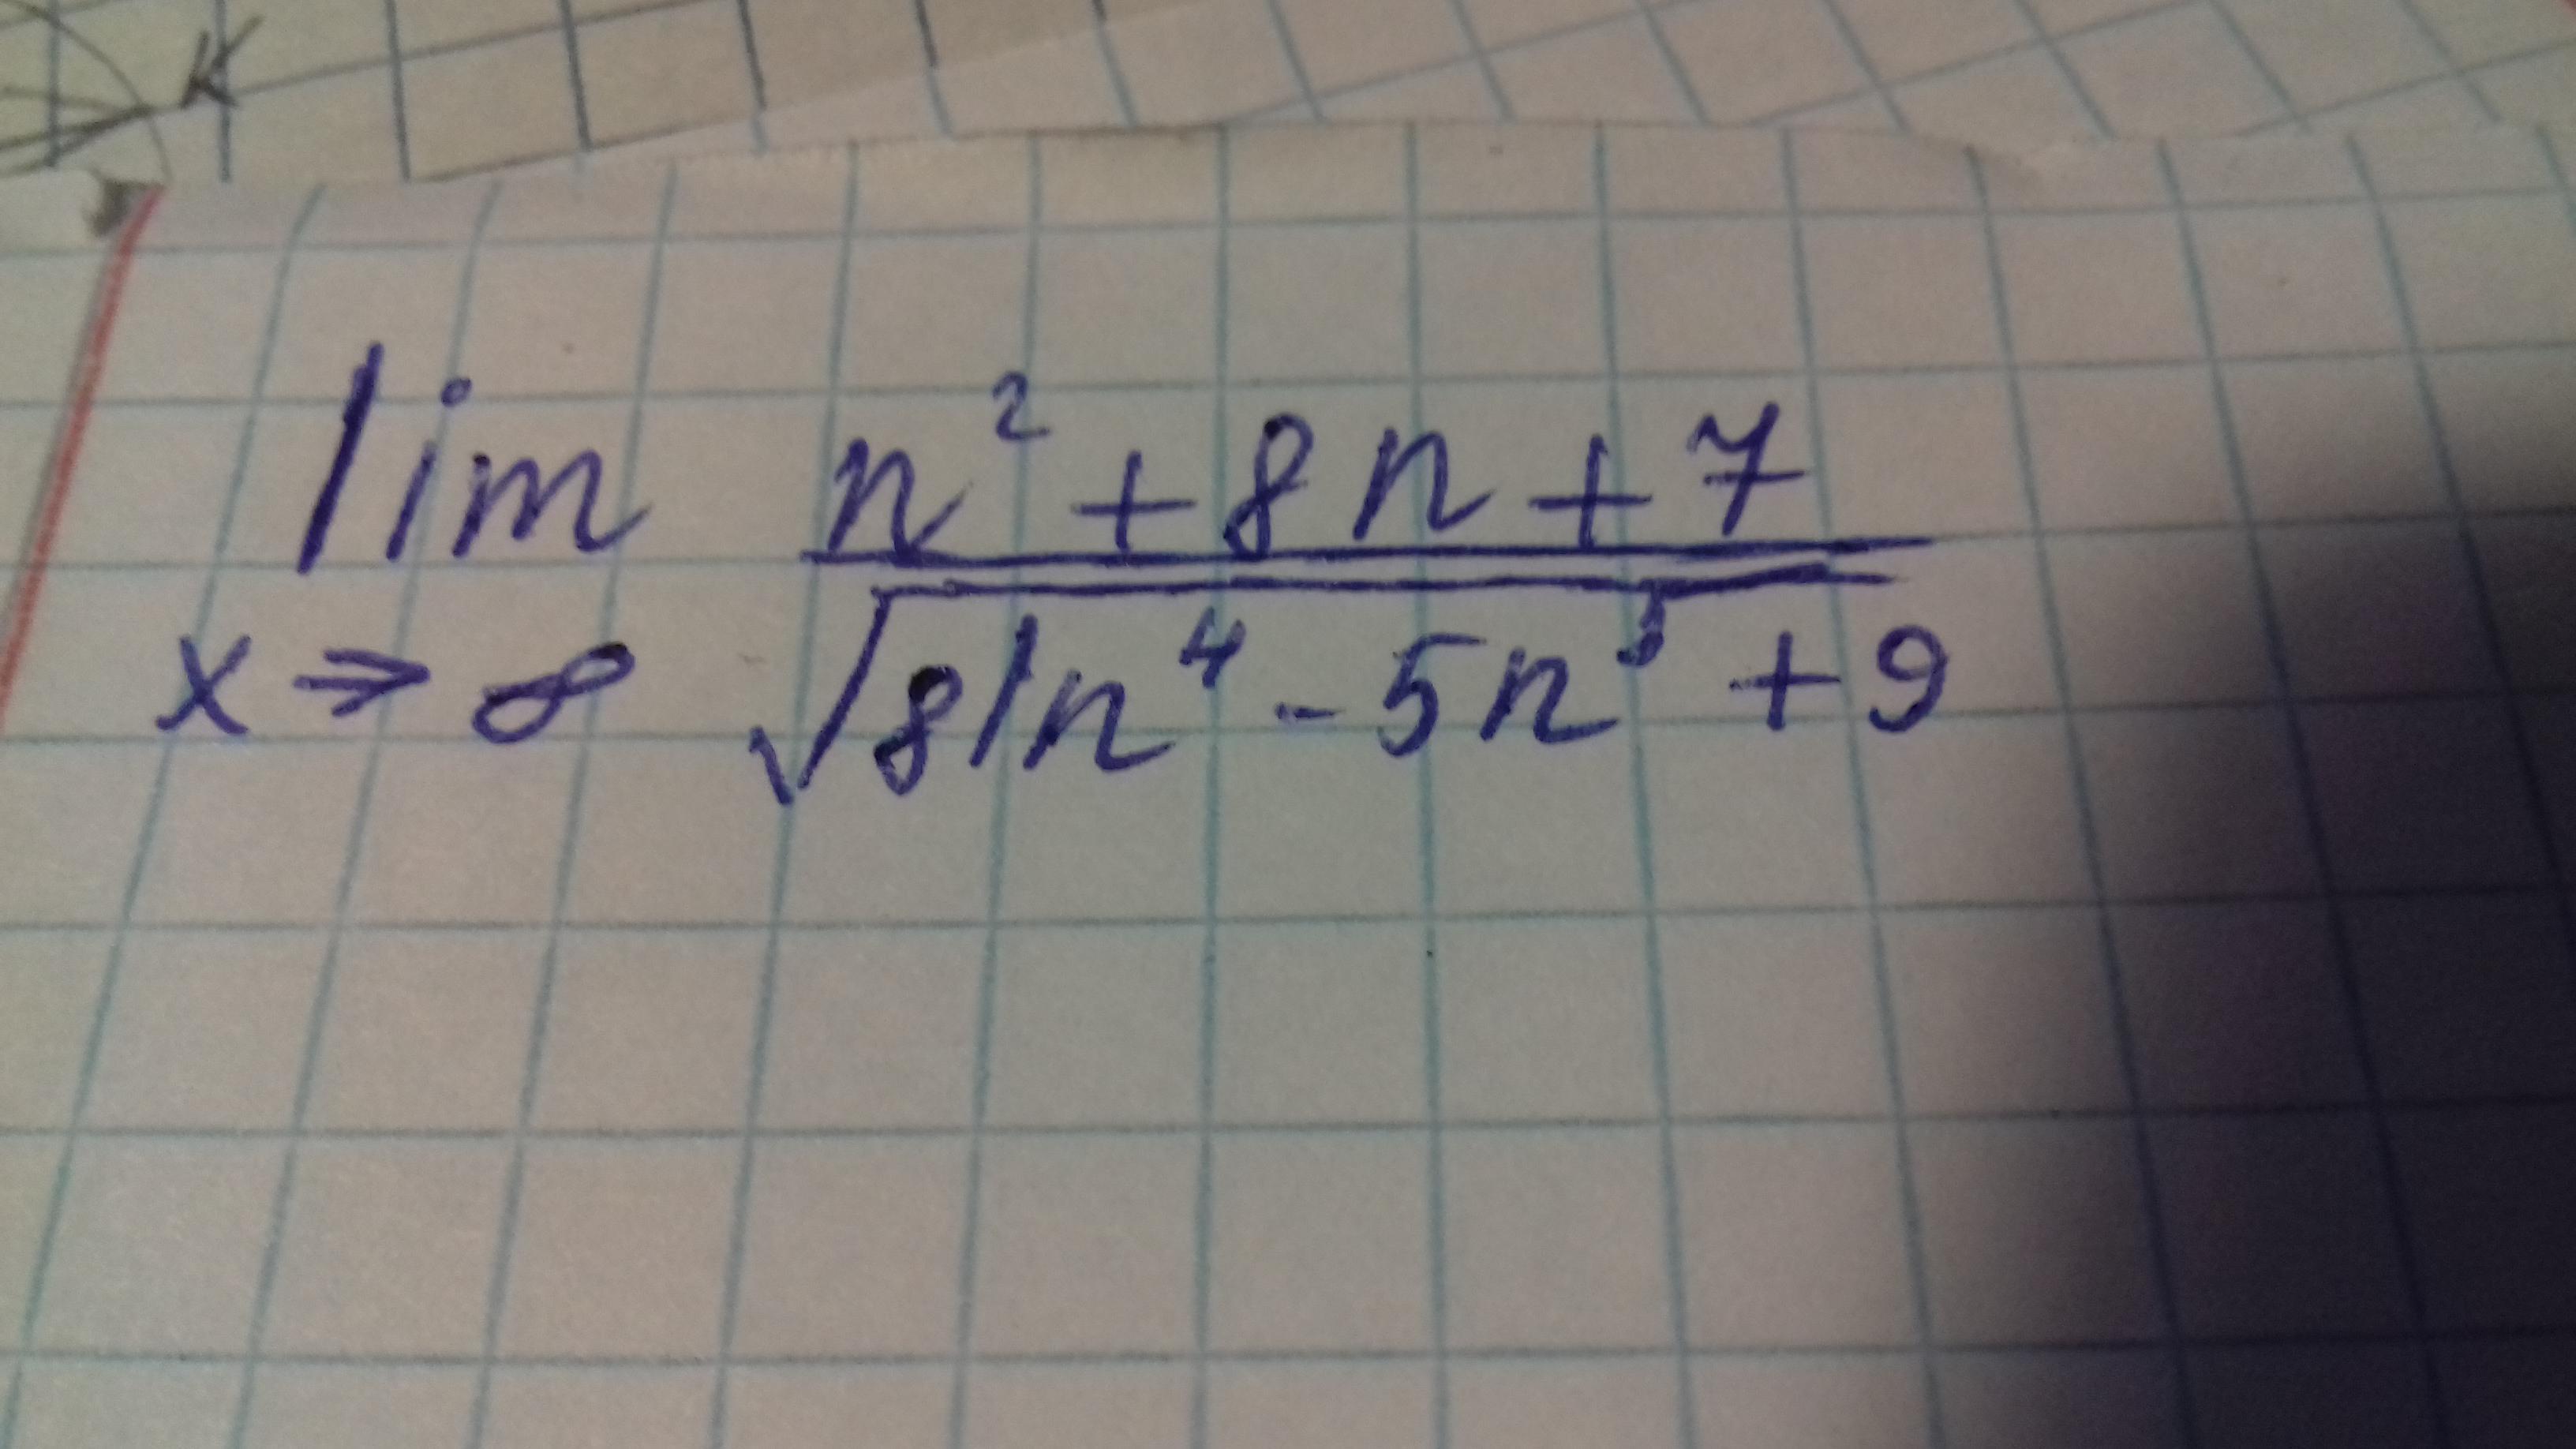 K
lim n² + 8n + 7
x → ∞ √81n⁴ - 5n³ + 9